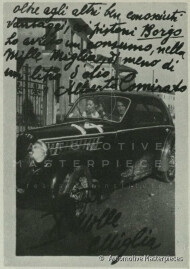 oltre agli altri ben conosciuti
vantaggi i pistoni Borgo
ho avuto un consumo, nella
Mille Miglia, di meno di
un litro d'olio
Alberto Comirato
AUTOMOTIVE
MASTERPIECES
Mille
Miglia
© Automotive Masterpieces